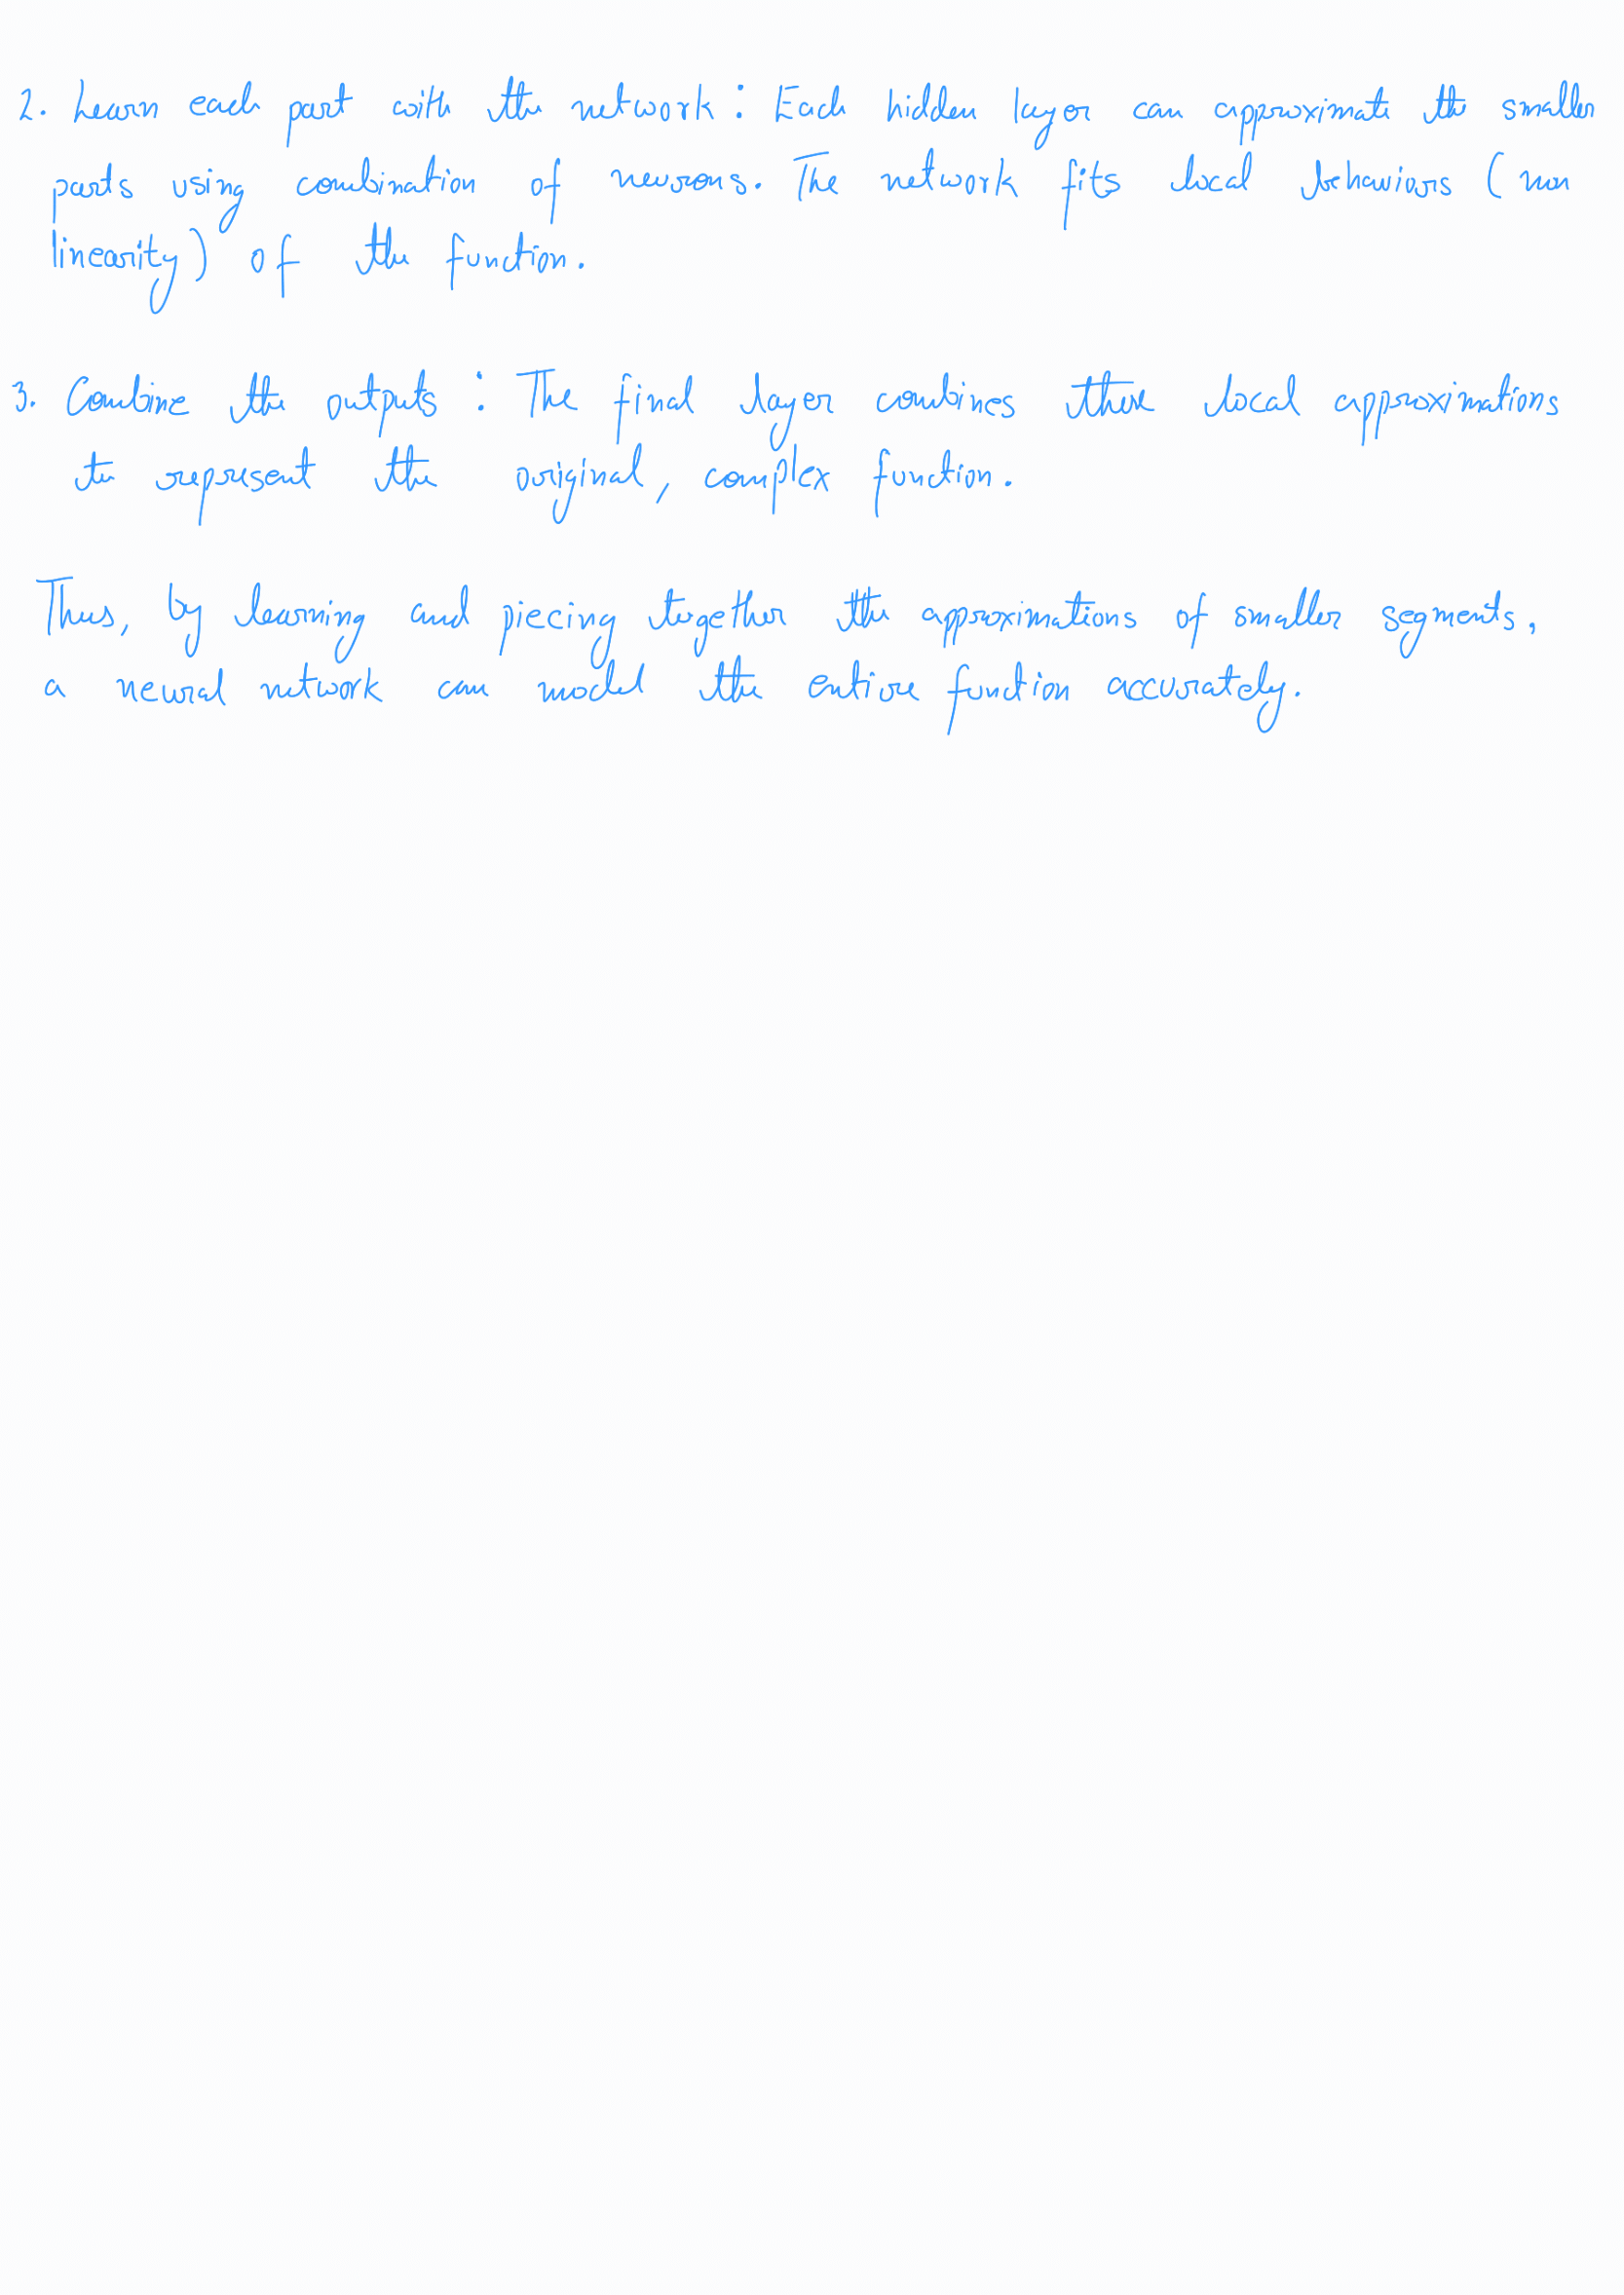 2. Learn each part with the network : Each hidden layer can approximate the smaller
parts using combination of neurons. The network fits local behaviors (non
linearity) of the function.
3. Combine the outputs : The final layer combines these local approximations
to represent the original, complex function.
Thus, by learning and piecing together the approximations of smaller segments,
a neural network can model the entire function accurately.